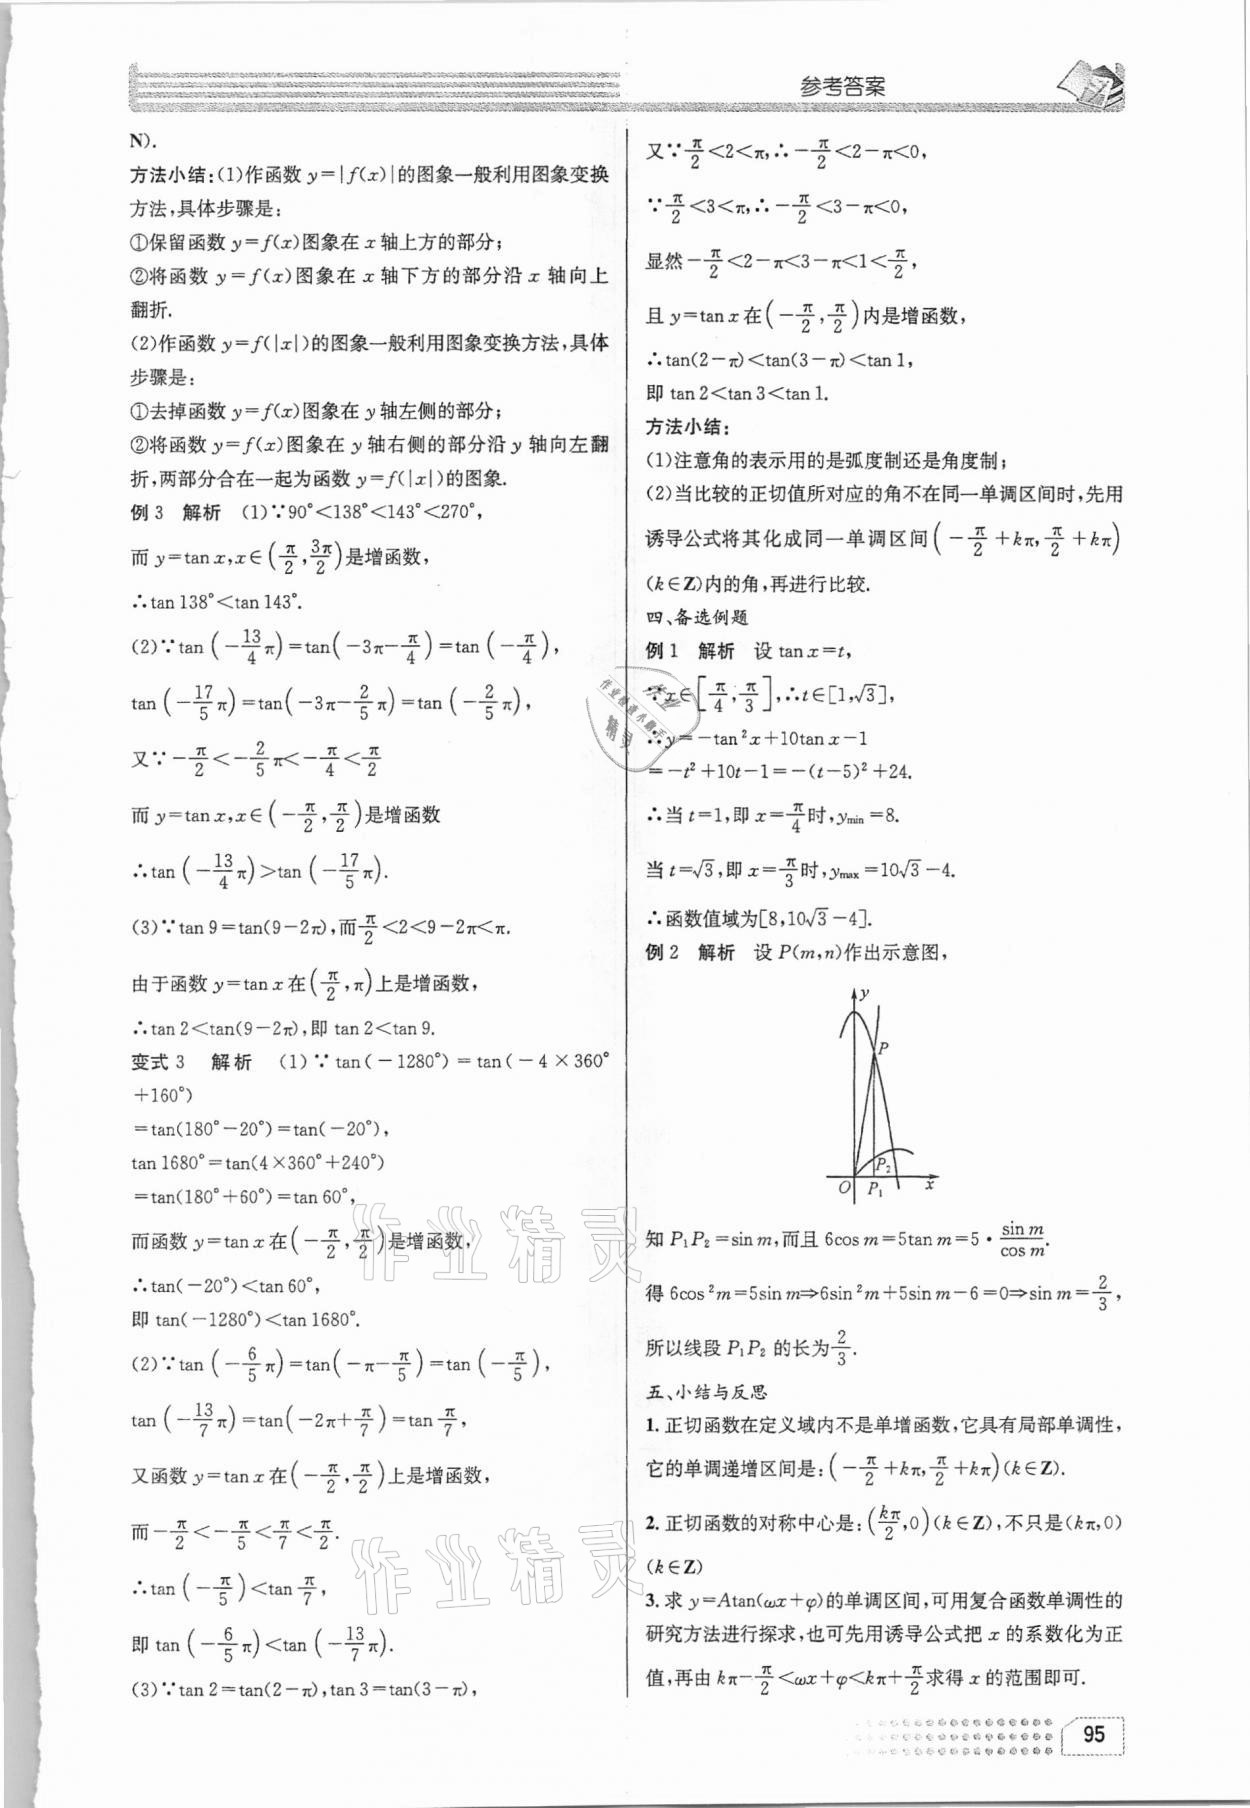 参考答案
N).
方法小结:(1)作函数 y=|f(x)|的图象一般利用图象变换
方法,具体步骤是:
①保留函数 y=f(x)图象在 x 轴上方的部分;
②将函数 y=f(x)图象在 x 轴下方的部分沿 x 轴向上
翻折.
(2)作函数 y=f(|x|)的图象一般利用图象变换方法,具体
步骤是:
①去掉函数 y=f(x)图象在 y 轴左侧的部分;
②将函数 y=f(x)图象在 y 轴右侧的部分沿 y 轴向左翻
折,两部分合在一起为函数 y=f(|x|)的图象.
例 3 解析 (1)∵90°<138°<143°<270°,
而 y=tan x,x∈(π/2,3π/2)是增函数,
∴tan 138°<tan 143°.
(2)∵tan(-13/4π)=tan(-3π-π/4)=tan(-π/4),
tan(-17/5π)=tan(-3π-2/5π)=tan(-2/5π),
又∵-π/2<-2/5π<-π/4<π/2
而 y=tan x,x∈(-π/2,π/2)是增函数
∴tan(-13/4π)>tan(-17/5π).
(3)∵tan 9=tan(9-2π),而π/2<2<9-2π<π.
由于函数 y=tan x 在(π/2,π)上是增函数,
∴tan 2<tan(9-2π),即 tan 2<tan 9.
变式 3 解析 (1)∵tan(-1280°)=tan(-4×360°
+160°)
=tan(180°-20°)=tan(-20°),
tan 1680°=tan(4×360°+240°)
=tan(180°+60°)=tan 60°,
而函数 y=tan x 在(-π/2,π/2)是增函数,
∴tan(-20°)<tan 60°,
即 tan(-1280°)<tan 1680°.
(2)∵tan(-6/5π)=tan(-π-π/5)=tan(-π/5),
tan(-13/7π)=tan(-2π+π/7)=tan π/7,
又函数 y=tan x 在(-π/2,π/2)上是增函数,
而-π/2<-π/5<π/7<π/2.
∴tan(-π/5)<tan π/7,
即 tan(-6/5π)<tan(-13/7π).
(3)∵tan 2=tan(2-π),tan 3=tan(3-π),
又∵π/2<2<π,∴-π/2<2-π<0,
∵π/2<3<π,∴-π/2<3-π<0,
显然-π/2<2-π<3-π<1<π/2,
且 y=tan x 在(-π/2,π/2)内是增函数,
∴tan(2-π)<tan(3-π)<tan 1,
即 tan 2<tan 3<tan 1.
方法小结:
(1)注意角的表示用的是弧度制还是角度制;
(2)当比较的正切值所对应的角不在同一单调区间时,先用
诱导公式将其化成同一单调区间(-π/2+kπ,π/2+kπ)
(k∈Z)内的角,再进行比较.
四、备选例题
例 1 解析 设 tan x=t,
∵x∈[π/4,π/3],∴t∈[1,√3],
∴y=-tan²x+10tan x-1
=-t²+10t-1=-(t-5)²+24.
∴当 t=1,即 x=π/4时,ymin=8.
当 t=√3,即 x=π/3时,ymax=10√3-4.
∴函数值域为[8,10√3-4].
例 2 解析 设 P(m,n)作出示意图,
y
P
P₂
O P₁ x
知 P₁P₂=sin m,而且 6cos m=5tan m=5·sin m/cos m.
得 6cos²m=5sin m⇒6sin²m+5sin m-6=0⇒sin m=2/3,
所以线段 P₁P₂ 的长为2/3.
五、小结与反思
1.正切函数在定义域内不是单增函数,它具有局部单调性,
它的单调递增区间是:(-π/2+kπ,π/2+kπ)(k∈Z).
2.正切函数的对称中心是:(kπ/2,0)(k∈Z),不只是(kπ,0)
(k∈Z)
3.求 y=Atan(ωx+φ)的单调区间,可用复合函数单调性的
研究方法进行探求,也可先用诱导公式把 x 的系数化为正
值,再由 kπ-π/2<ωx+φ<kπ+π/2求得 x 的范围即可.
作业精灵
作业精灵
95